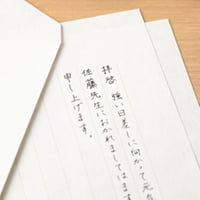 拝啓 強い日差しに向かって元気
佐藤先生におかれましてはます
申し上げます。